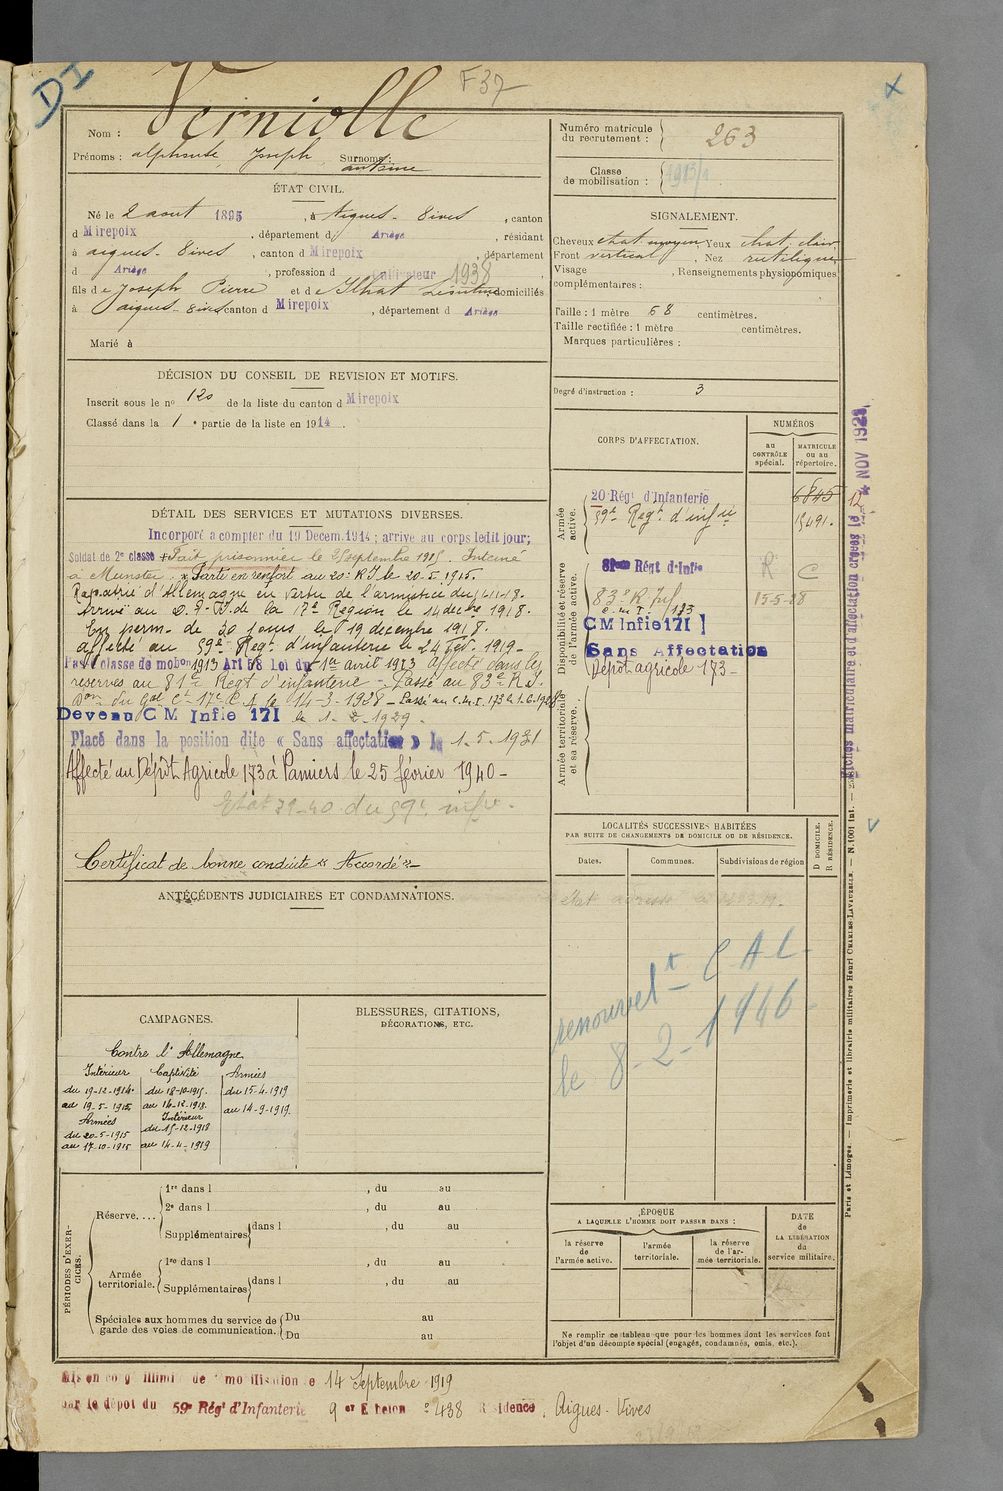 DI
F 37
X
Nom : Verniolle
Prénoms : alphonse Joseph Surnoms : antoine
ÉTAT CIVIL.
Né le 2 aout 1895, à Aigues-Vives, canton
d Mirepoix, département d Ariège, résidant
à aigues-Vives, canton d Mirepoix, département
d Ariège, profession d Cultivateur 1938
fils de Joseph Pierre et de Ilhat domiciliés
à aigues-Vives canton d Mirepoix, département d Ariège
Marié à
DÉCISION DU CONSEIL DE REVISION ET MOTIFS.
Inscrit sous le no 120 de la liste du canton d Mirepoix
Classé dans la 1e partie de la liste en 1914.
DÉTAIL DES SERVICES ET MUTATIONS DIVERSES.
Incorporé a compter du 19 Decem. 1914 ; arrivé au corps ledit jour;
Soldat de 2e classe + Fait prisonnier le 25 septembre 1915. Interné
à Munster. x Parti en renfort au 20e R.I. le 20-5-1915.
Rapatrié d'Allemagne en vertu de l'armistice du 11.11.18.
Arrivé au D.G.I. de la 17e Région le 14 decbre 1918.
En perm. de 30 jours le 19 decembre 1918.
affecté au 59e Regt d'infanterie le 24 Fév. 1919-
Passé classe de mobon 1913 Art 58 Loi du 1er avril 1923 Affecté dans les
réserves au 81e Régt d'infanterie - Passé au 83e R.I.
Don du Gal Ct 17e C.A. le 14-3-1928 - Passé au C.M.I. 173 le 1.6.1928
Devenu C M Infie 171 le 1-2-1929.
Placé dans la position dite « Sans affectation » le 1-5-1931
Affecté au Dépôt Agricole 173 à Pamiers le 25 février 1940-
Etat 39-40 du 59e infie.
Certificat de bonne conduite « Accordé »-
ANTÉCÉDENTS JUDICIAIRES ET CONDAMNATIONS.
CAMPAGNES.
Contre l'Allemagne
Intérieur
du 19-12-1914
au 19-5-1915
Armées
du 20-5-1915
au 17-10-1915
Captivité
du 18-10-1915.
au 14-12-1918.
Intérieur
du 15-12-1918
au 14-4-1919
Armées
du 15-4-1919
au 14-9-1919.
BLESSURES, CITATIONS,
DÉCORATIONS, ETC.
PÉRIODES D'EXERCICES.
Réserve....
1re dans l , du au
2e dans l , du au
Supplémentaires dans l , du au
Armée territoriale.
1re dans l , du au
Supplémentaires dans l , du au
Spéciales aux hommes du service de garde des voies de communication.
Du au
Du au
Numéro matricule du recrutement : 263
Classe de mobilisation : 1913/
SIGNALEMENT.
Cheveux chat moyen Yeux chat. clair.
Front vertical, Nez rectiligne
Visage , Renseignements physionomiques
complémentaires :
Taille : 1 mètre 58 centimètres.
Taille rectifiée : 1 mètre centimètres.
Marques particulières :
Degré d'instruction : 3
CORPS D'AFFECTATION.
NUMÉROS
au CONTRÔLE spécial.
MATRICULE ou au répertoire.
Armée active.
20 Régt d'Infanterie 6845
59e Regt d'infie 15491.
Disponibilité et réserve de l'armée active.
81eme Régt d'Infie R C
83e R. Inf 15-5-28
C. M. I. 173
C M Infie 171
Sans Affectation
Dépôt agricole 173-
Armée territoriale et sa réserve.
LOCALITÉS SUCCESSIVES HABITÉES
PAR SUITE DE CHANGEMENTS DE DOMICILE OU DE RÉSIDENCE.
Dates.
Communes.
Subdivisions de région
D DOMICILE.
R RÉSIDENCE.
renouvelt C A C -
le 8-2-1946-
ÉPOQUE
A LAQUELLE L'HOMME DOIT PASSER DANS :
la réserve de l'armée active.
l'armée territoriale.
la réserve de l'armée territoriale.
DATE de LA LIBÉRATION du service militaire.
Ne remplir ce tableau que pour les hommes dont les services font
l'objet d'un décompte spécial (engagés, condamnés, omis, etc.).
Fiches matriculaire et d'affectation créées le 12 NOV 192
Paris et Limoges. — Imprimerie et librairie militaires Henri CHARLES-LAVAUZELLE. — N. 1001 int.
Mis en congé illimité de démobilisation le 14 Septembre 1919
par le dépôt du 59e Régt d'Infanterie 9 er Echelon n° 438 Résidence, Aigues-Vives